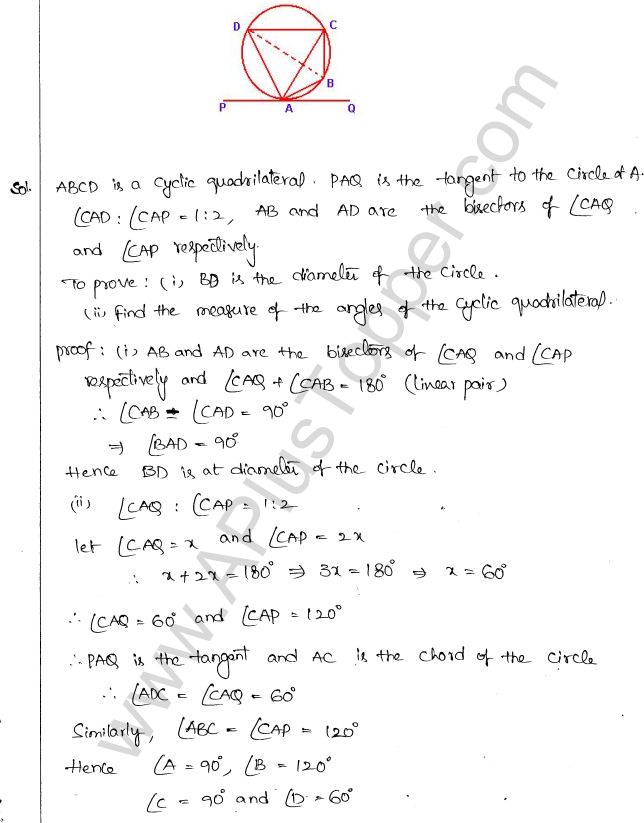 D C
B
P A Q
Sol. ABCD is a cyclic quadrilateral. PAQ is the tangent to the circle at A.
∠CAD : ∠CAP = 1:2, AB and AD are the bisectors of ∠CAQ
and ∠CAP respectively.
To prove : (i) BD is the diameter of the circle.
(ii) find the measure of the angles of the cyclic quadrilateral.
proof : (i) AB and AD are the bisectors of ∠CAQ and ∠CAP
respectively and ∠CAQ + ∠CAB = 180° (linear pair)
∴ ∠CAB + ∠CAD = 90°
⇒ ∠BAD = 90°
Hence BD is at diameter of the circle.
(ii) ∠CAQ : ∠CAP = 1:2
let ∠CAQ = x and ∠CAP = 2x
∴ x + 2x = 180° ⇒ 3x = 180° ⇒ x = 60°
∴ ∠CAQ = 60° and ∠CAP = 120°
∴ PAQ is the tangent and AC is the chord of the circle
∴ ∠ADC = ∠CAQ = 60°
Similarly, ∠ABC = ∠CAP = 120°
Hence ∠A = 90°, ∠B = 120°
∠C = 90° and ∠D = 60°
www.APlusTopper.com